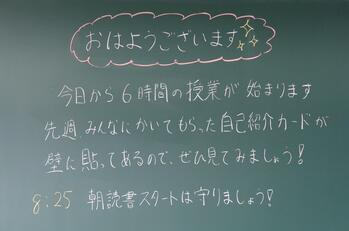 おはようございます
今日から6時間の授業が始まります
先週みんなにかいてもらった自己紹介カードが
壁に貼ってあるので、ぜひ見てみましょう!
8:25 朝読書スタートは守りましょう!